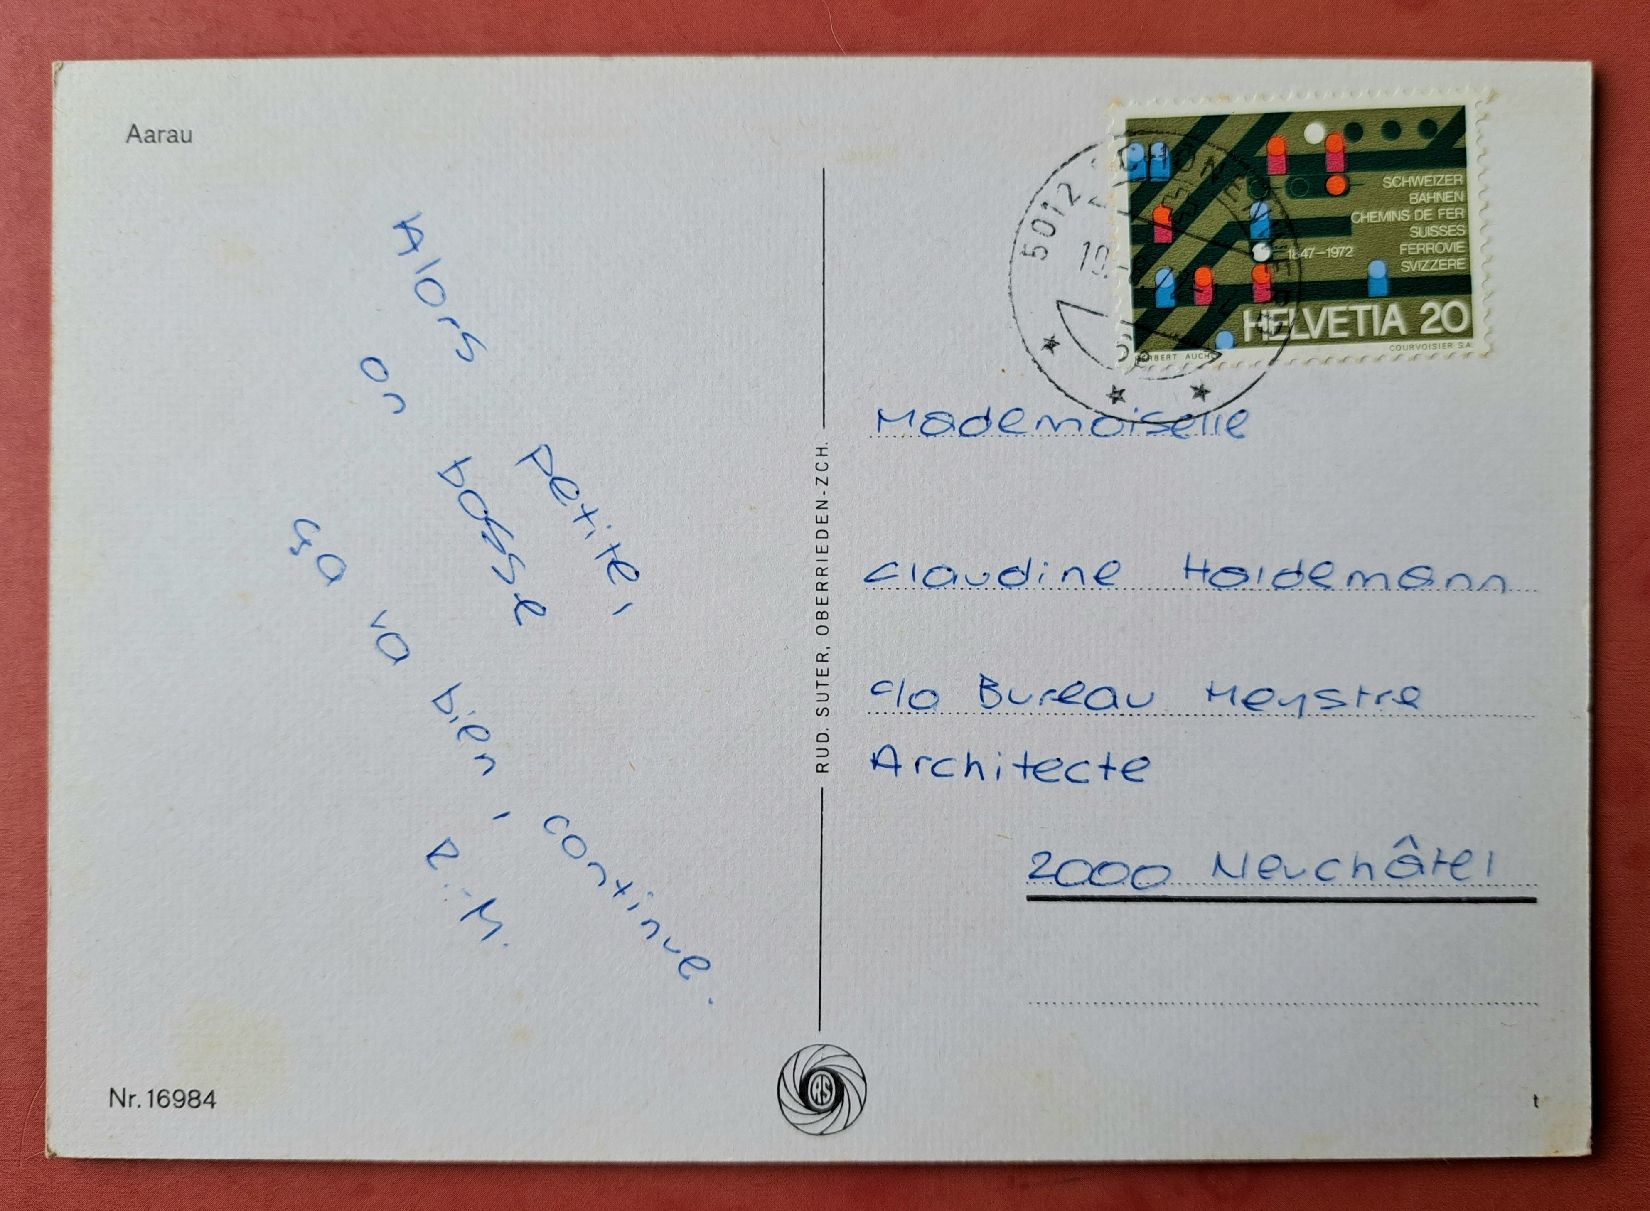 Aarau
Alors petite,
on bosse
ça va bien, continue.
R.-M.
Nr. 16984
RUD. SUTER, OBERRIEDEN-ZCH.
5012
SCHWEIZER
BAHNEN
CHEMINS DE FER
SUISSES
FERROVIE
SVIZZERE
1847-1972
HELVETIA 20
COURVOISIER S.A.
Mademoiselle
Claudine Haldemann
c/o Bureau Meystre
Architecte
2000 Neuchâtel
t